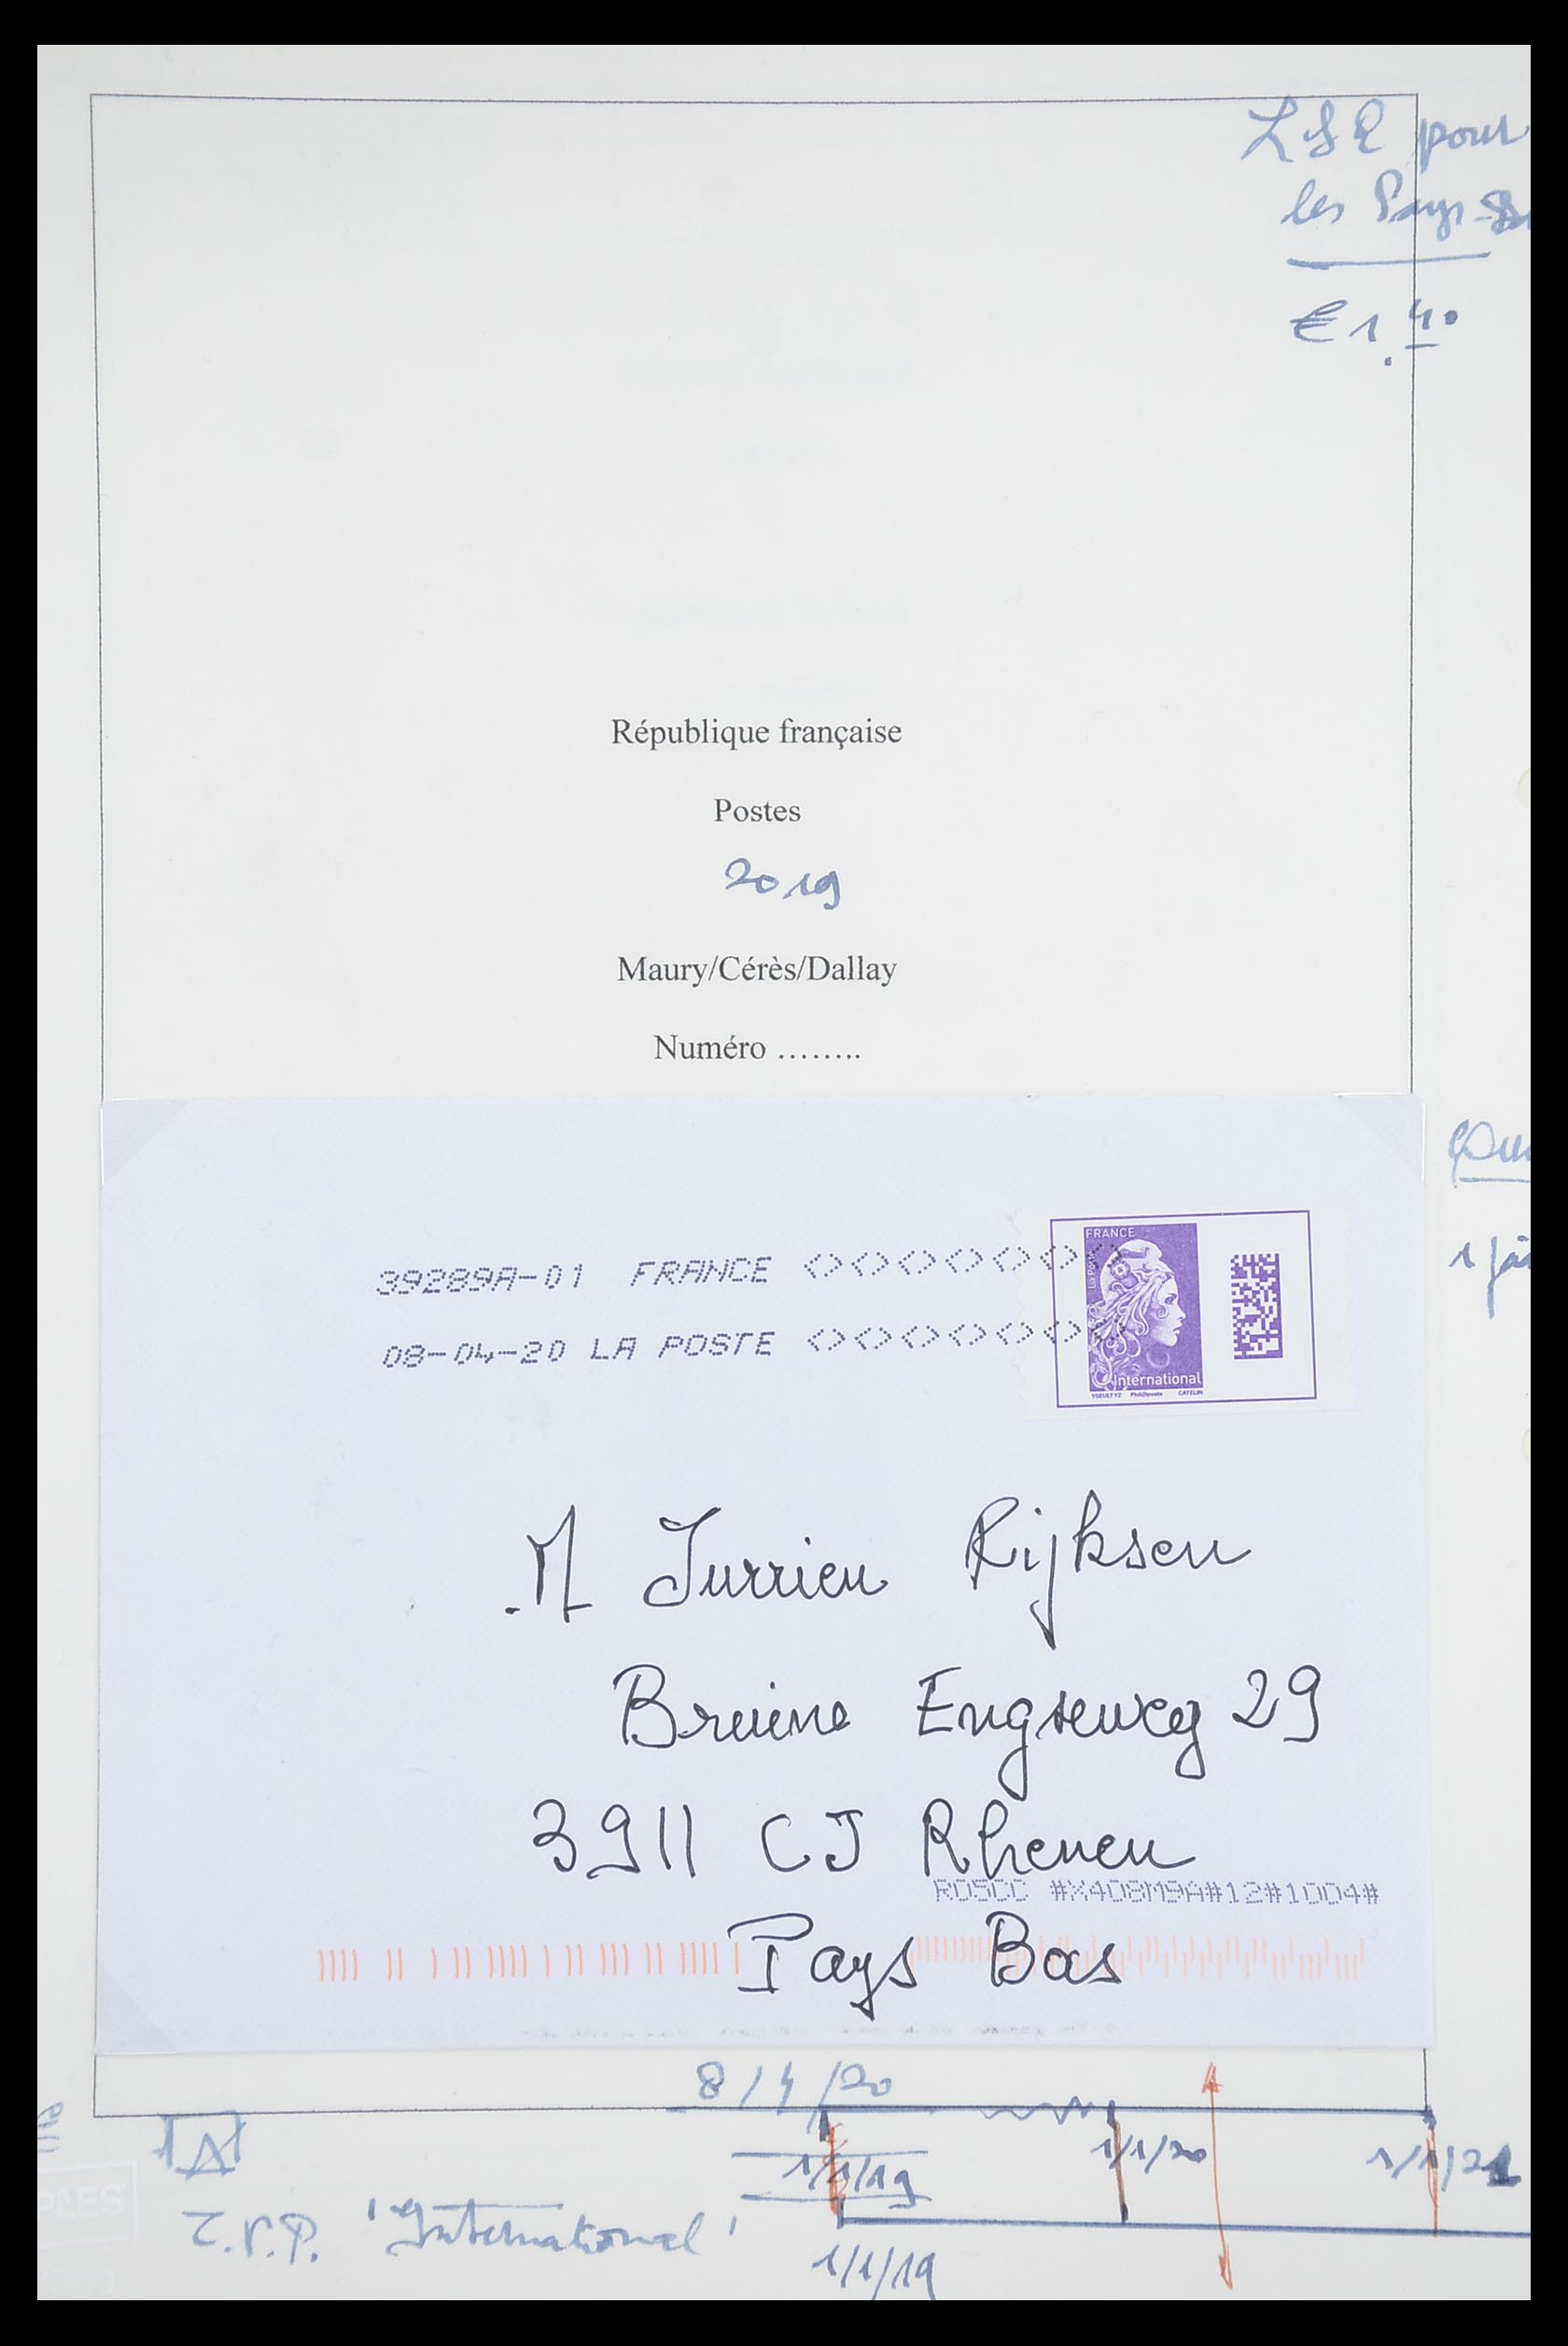 LSE pour
les Pays-
€ 1.40
République française
Postes
2019
Maury/Cérès/Dallay
Numéro ……..
1
39289A-01 FRANCE <><><><><><>
08-04-20 LA POSTE <><><><><><>
FRANCE
La Poste
International
YSEULT YZ Phil@poste CATELIN
M Jurrien Rijksen
Bruine Engseweg 29
3911 CJ Rhenen
RD5CC #%408M9A#12#1004#
Pays Bas
8/4/20
A
1/1/19
1/1/20
1/1/21
T.V.P. 'International'
1/1/19